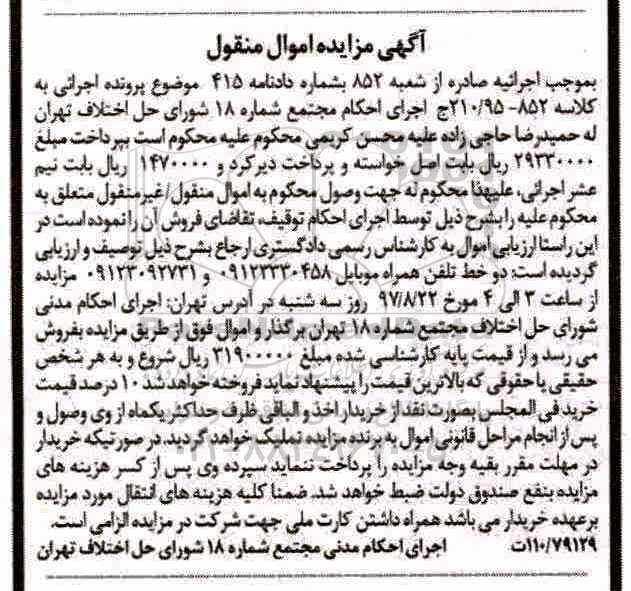 آگهی مزایده اموال منقول
بموجب اجرائیه صادره از شعبه ۸۵۲ بشماره دادنامه ۴۱۵ موضوع پرونده اجرائی به
کلاسه ۸۵۲- ۲۱۰/۹۵ج اجرای احکام مجتمع شماره ۱۸ شورای حل اختلاف تهران
له حمیدرضا حاجی زاده علیه محسن کریمی محکوم علیه محکوم است بپرداخت مبلغ
۲۹۳۳۰۰۰۰ ریال بابت اصل خواسته و پرداخت دیرکرد و ۱۴۷۰۰۰۰ ریال بابت نیم
عشر اجرائی، علیهذا محکوم له جهت وصول محکوم به اموال منقول/غیرمنقول متعلق به
محکوم علیه را بشرح ذیل توسط اجرای احکام توقیف، تقاضای فروش آن را نموده است در
این راستا ارزیابی اموال به کارشناس رسمی دادگستری ارجاع بشرح ذیل توصیف و ارزیابی
گردیده است: دو خط تلفن همراه موبایل ۰۹۱۲۳۳۳۰۴۵۸ و ۰۹۱۲۳۰۹۲۷۳۱ مزایده
از ساعت ۳ الی ۴ مورخ ۹۷/۸/۲۲ روز سه شنبه در آدرس تهران: اجرای احکام مدنی
شورای حل اختلاف مجتمع شماره ۱۸ تهران برگذار و اموال فوق از طریق مزایده بفروش
می رسد و از قیمت پایه کارشناسی شده مبلغ ۳۱۹۰۰۰۰۰ ریال شروع و به هر شخص
حقیقی یا حقوقی که بالاترین قیمت را پیشنهاد نماید فروخته خواهد شد ۱۰ درصد قیمت
خرید فی المجلس بصورت نقد از خریدار اخذ و الباقی ظرف حداکثر یکماه از وی وصول و
پس از انجام مراحل قانونی اموال به برنده مزایده تملیک خواهد گردید. در صورتیکه خریدار
در مهلت مقرر بقیه وجه مزایده را پرداخت ننماید سپرده وی پس از کسر هزینه های
مزایده بنفع صندوق دولت ضبط خواهد شد. ضمنا کلیه هزینه های انتقال مورد مزایده
برعهده خریدار می باشد همراه داشتن کارت ملی جهت شرکت در مزایده الزامی است.
۱۱۰/۷۹۱۲۹ت اجرای احکام مدنی مجتمع شماره ۱۸ شورای حل اختلاف تهران